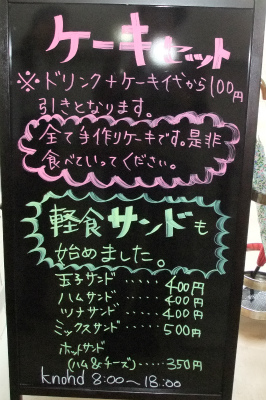 ケーキセット
※・ドリンク+ケーキ代から100円
引きとなります。
全て手作りケーキです。是非
食べていってください。
軽食サンドも
始めました。
玉子サンド・・・・・400円
ハムサンド・・・・・400円
ツナサンド・・・・・400円
ミックスサンド・・・・・500円
ホットサンド
(ハム&チーズ)・・・・・350円
knohd 8:00~18:00